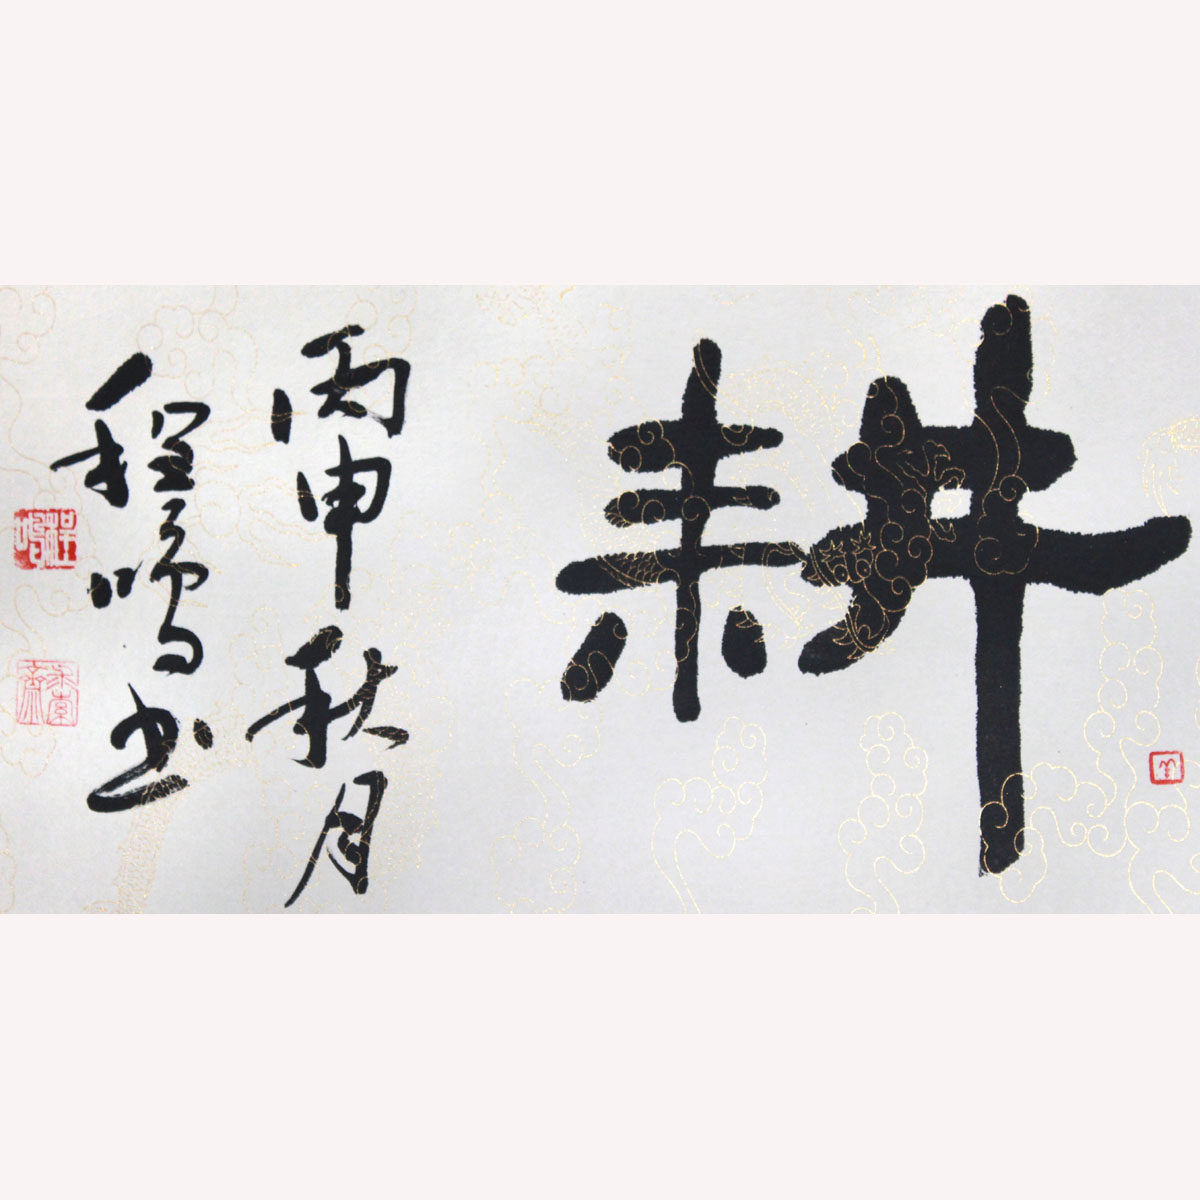 耕
丙申秋月
程鸣书
程鸣